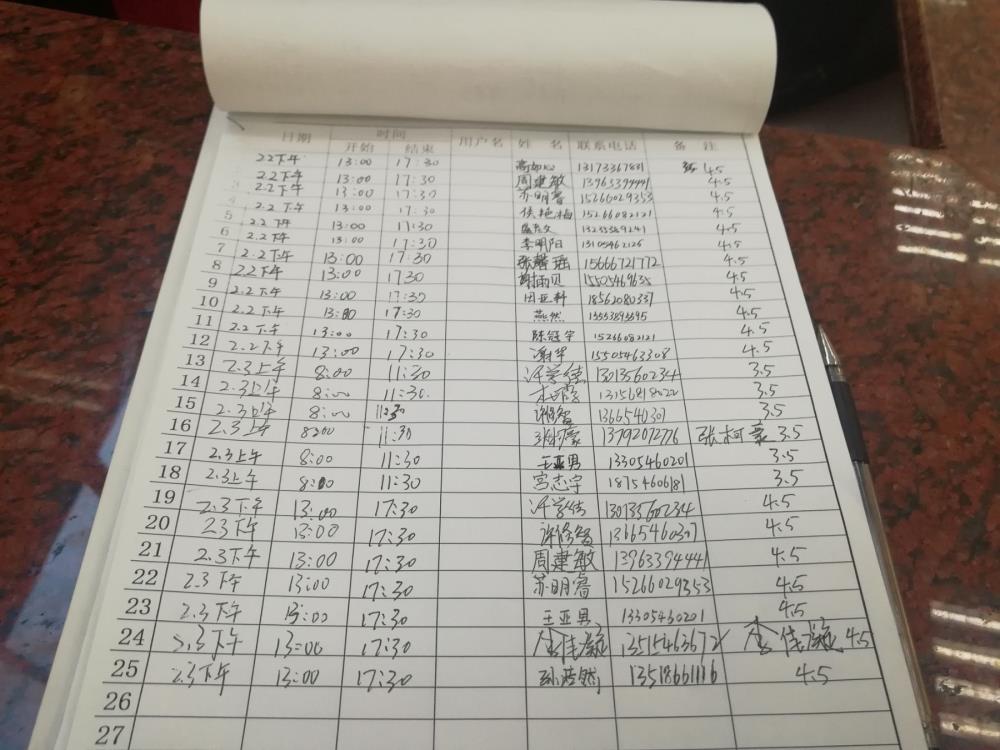 日期 时间 用户名 姓名 联系电话 备注
开始 结束
2.2下午 13:00 17:30 4.5
2.2下午 13:00 17:30 周建敏 13963394441 4.5
3 2.2下午 13:00 17:30 苏明睿 15266029353 4.5
4 2.2下午 13:00 17:30 侯艳梅 15266082121 4.5
5 2.2下午 13:00 17:30 4.5
6 2.2下午 13:00 17:30 李明阳 4.5
7 2.2下午 13:00 17:30 张馨瑶 15666721772 4.5
8 2.2下午 13:00 17:30 15505469635 4.5
9 2.2下午 13:00 17:30 18562080337 4.5
10 2.2下午 13:00 17:30 燕然 4.5
11 2.2下午 13:00 17:30 陈冠宇 15266082121 4.5
12 2.2下午 13:00 17:30 谢华 15505463308 4.5
13 2.3上午 8:00 11:30 13013560234 3.5
14 2.3上午 8:00 11:30. 13156818022 3.5
15 2.3上午 8:00 11:30 3.5
16 2.3上午 8:00 11:30 张柯豪 13792072776 张柯豪 3.5
17 2.3上午 8:00 11:30 王亚男 13305460201 3.5
18 2.3上午 8:00 11:30 宫志宇 3.5
19 2.3下午 13:00 17:30 13013560234 4.5
20 2.3下午 13:00 17:30 4.5
21 2.3下午 13:00 17:30 周建敏 13963394441 4.5
22 2.3下午 13:00 17:30 苏明睿 15266029353 4.5
23 2.3下午 13:00 17:30 王亚男 13305460201 4.5
24 2.3下午 13:00 17:30 金佳凝 金佳凝 4.5
25 2.3下午 13:00 17:30 孙浩然 13518661116 4.5
26
27